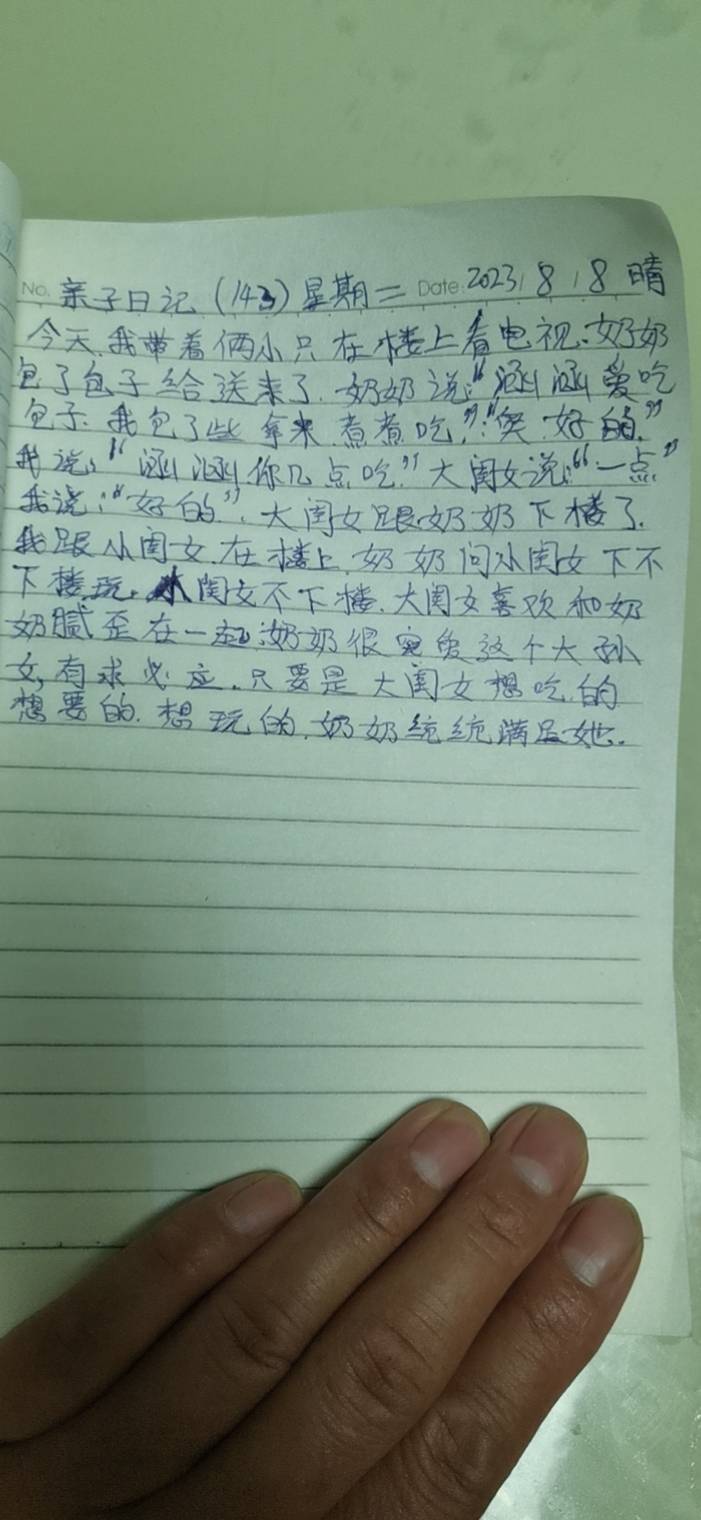 No. 亲子日记（143）星期二 Date. 2023 8 8 晴
今天.我带着俩小只在楼上看电视.奶奶
包了包子给送来了.奶奶说:“涵涵爱吃
包子.我包了些拿来煮煮吃.”:“哭.好的.”
我说:“涵涵.你几点吃.”大闺女说:“一点.”
我说:“好的”.大闺女跟奶奶下楼了.
我跟小闺女.在楼上.奶奶问小闺女下不
下楼玩.小闺女不下楼.大闺女喜欢和奶
奶腻歪在一起.奶奶很宠爱这个大孙
女,有求必应.只要是大闺女想吃的
想要的.想玩的.奶奶统统满足她.